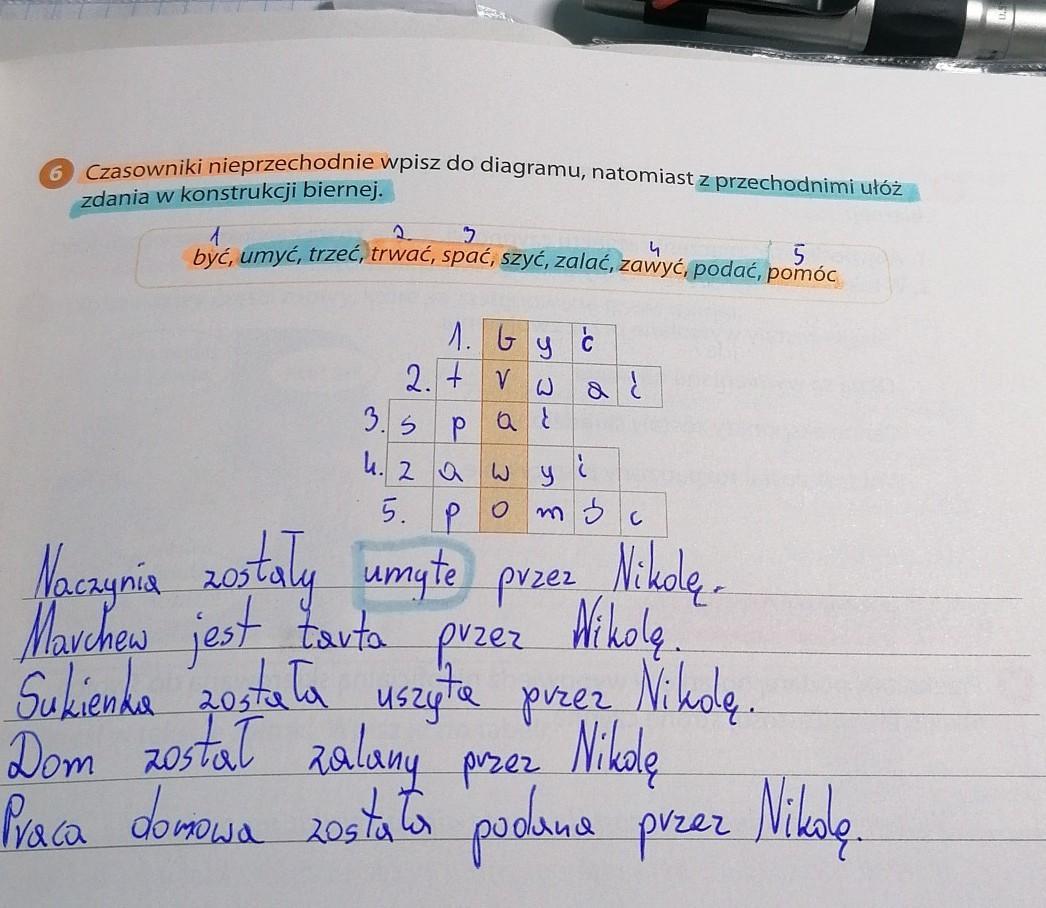 6 Czasowniki nieprzechodnie wpisz do diagramu, natomiast z przechodnimi ułóż
zdania w konstrukcji biernej.
1 2 3 4 5
być, umyć, trzeć, trwać, spać, szyć, zalać, zawyć, podać, pomóc
1. b y ć
2. t r w a ć
3. s p a ć
4. z a w y ć
5. p o m ó c
Naczynia zostały umyte przez Nikolę.
Marchew jest tarta przez Nikolę.
Sukienka została uszyta przez Nikolę.
Dom został zalany przez Nikolę
Praca domowa została podana przez Nikolę.